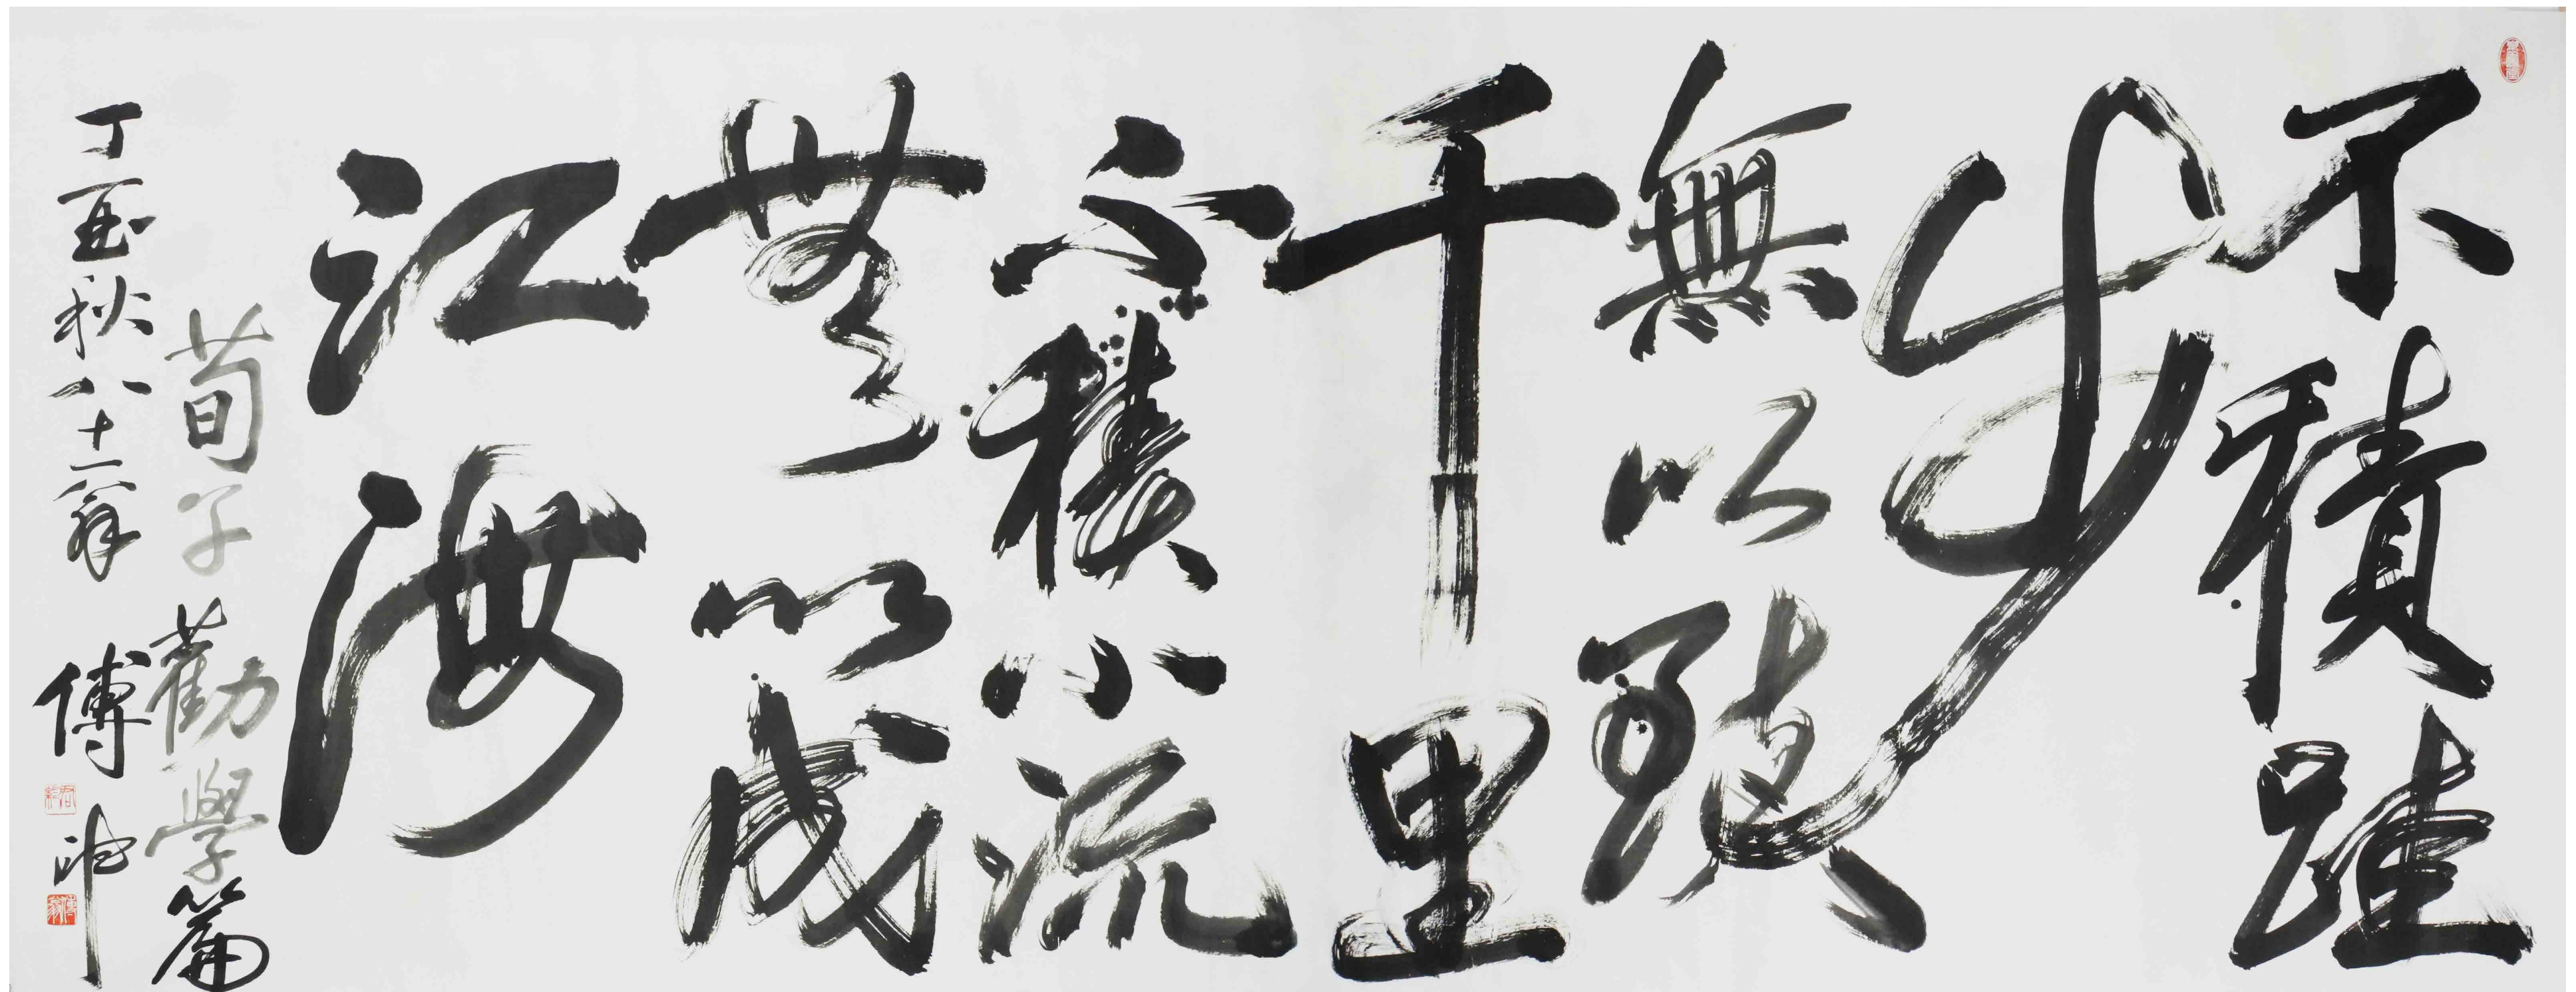 不積跬
步
無以臻
千里
不積小流
無以成
江海
荀子勸學篇
丁酉秋八十一翁傅申